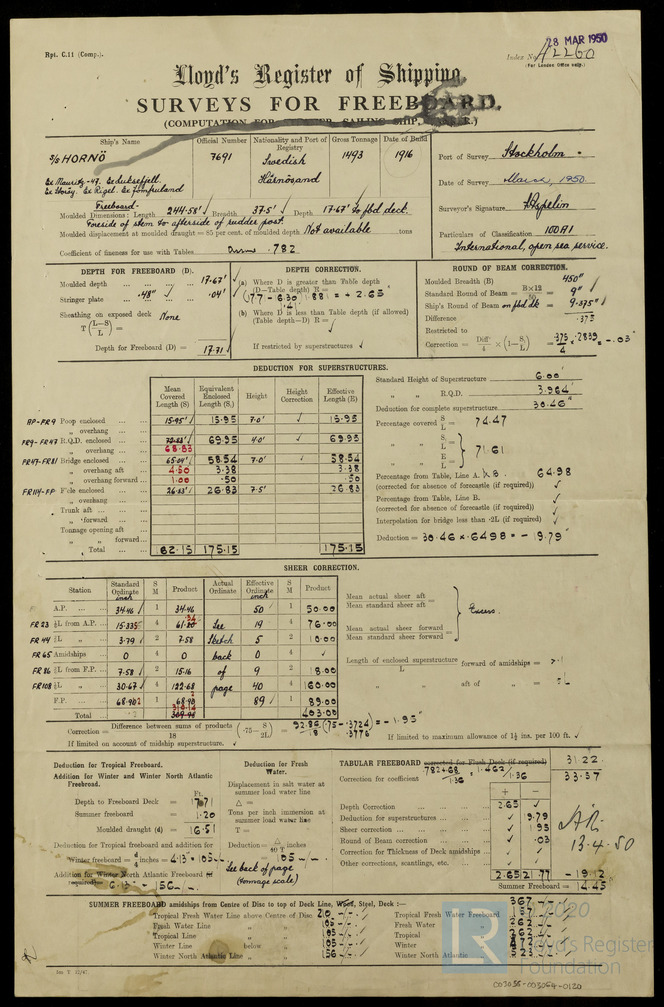 Rpt. C.11 (Comp.).
28 MAR 1950
Index No. 42260
(For London Office only.)
Lloyd's Register of Shipping.
SURVEYS FOR FREEBOARD.
Ship's Name
Official Number
Nationality and Port of Registry
Gross Tonnage
Date of Build
S/S HORNÖ
7691
Swedish
Härnösand
1493
1916
Port of Survey Stockholm
Date of Survey March, 1950.
Surveyor's Signature
Particulars of Classification 100A1
International, open sea service.
Freeboard-
Moulded Dimensions: Length 244.58' Breadth 37.5' Depth 17.67' to fbd. deck.
Foreside of stem to afterside of rudder post.
Moulded displacement at moulded draught = 85 per cent. of moulded depth Not available tons
Coefficient of fineness for use with Tables .782
DEPTH FOR FREEBOARD (D).
Moulded depth 17.67'
Stringer plate .48" .04'
Sheathing on exposed deck None
T (L-S / L) =
Depth for Freeboard (D) = 17.71
DEPTH CORRECTION.
(a) Where D is greater than Table depth
(D-Table depth) R =
= + 2.65
(b) Where D is less than Table depth (if allowed)
(Table depth-D) R =
If restricted by superstructures
ROUND OF BEAM CORRECTION.
Moulded Breadth (B) 450"
Standard Round of Beam = B×12/50 = 9"
Ship's Round of Beam on fbd dk = 9.375"
Difference .375
Restricted to
Correction = Diff/4 × (1-S₁/L) = .375/4 × .2839 = -.03"
DEDUCTION FOR SUPERSTRUCTURES.
Mean Covered Length (S)
Equivalent Enclosed Length (S₁)
Height
Height Correction
Effective Length (E)
AP-FR9 Poop enclosed 15.95' 15.95 7.0' 15.95
" overhang
FR9-FR47 R.Q.D. enclosed 69.95 4.0' 69.95
" overhang 68.83
FR47-FR81 Bridge enclosed 65.04' 58.54 7.0' 58.54
" overhang aft 4.50 3.38 3.38
" overhang forward 1.00 .50 .50
FR114-FP F'cle enclosed 26.83' 26.83 7.5' 26.83
" overhang
Trunk aft
" forward
Tonnage opening aft
" " forward
Total 182.15 175.15 175.15
Standard Height of Superstructure 6.00'
" " R.Q.D. 3.964'
Deduction for complete superstructure 30.46"
Percentage covered S/L = 74.47
" " S₁/L =
" " E/L = 71.61
Percentage from Table, Line A. 64.98
(corrected for absence of forecastle (if required))
Percentage from Table, Line B.
(corrected for absence of forecastle (if required))
Interpolation for bridge less than .2L (if required)
Deduction = 30.46 × .6498 = - 19.79"
SHEER CORRECTION.
Station
Standard Ordinate inch
S M
Product
Actual Ordinate
Effective Ordinate inch
S M
Product
A.P. 34.46 1 34.46 50 1 50.00
FR23 ⅙L from A.P. 15.335 4 See 19 4 76.00
FR44 ⅓L " 3.79 2 7.58 Sketch 5 2 10.00
FR65 Amidships 0 4 0 back 0 4
FR86 ⅓L from F.P. 7.58 2 15.16 of 9 2 18.00
FR108 ⅙L " 30.67 4 122.68 page 40 4 160.00
F.P. 68.92 1 89 1 89.00
Total 403.00
Mean actual sheer aft =
Mean standard sheer aft
Mean actual sheer forward =
Mean standard sheer forward
Excess.
Length of enclosed superstructure forward of amidships = > .1
L
" aft of " =
Correction = Difference between sums of products / 18 (.75-S/2L) = 92.86/18 (.75-.3724) = -1.95"
.3776
If limited on account of midship superstructure.
If limited to maximum allowance of 1½ ins. per 100 ft.
Deduction for Tropical Freeboard.
Addition for Winter and Winter North Atlantic Freeboard.
Ft.
Depth to Freeboard Deck = 17.71
Summer freeboard = 1.20
Moulded draught (d) = 16.51
Deduction for Tropical freeboard and addition for
Winter freeboard = d/4 inches = 4.13" = 105
Addition for Winter North Atlantic Freeboard (if required) = 6.13 = 156
Deduction for Fresh Water.
Displacement in salt water at summer load water line
Δ =
Tons per inch immersion at summer load water line
T =
Deduction = Δ/40 T inches
= 105
See back of page
(Tonnage scale)
TABULAR FREEBOARD corrected for Flush Deck (if required) 31.22
Correction for coefficient .782+.68 / 1.36 = 1.462 / 1.36 33.57
+ -
Depth Correction 2.65
Deduction for superstructures 19.79
Sheer correction 1.95
Round of Beam correction .03
Correction for Thickness of Deck amidships
Other corrections, scantlings, etc.
2.65 21.77 - 19.12
Summer Freeboard = 14.45
13-4-50
SUMMER FREEBOARD amidships from Centre of Disc to top of Deck Line, Wood, Steel, Deck :— 367
Tropical Fresh Water Line above Centre of Disc 210
Fresh Water Line " " 105
Tropical Line " " 105
Winter Line below " 105
Winter North Atlantic Line " " 156
Tropical Fresh Water Freeboard 157
Fresh Water " 262
Tropical " 262
Winter " 472
Winter North Atlantic " 523
2020
Lloyd's Register
Foundation
LR
C07055-003064-0120